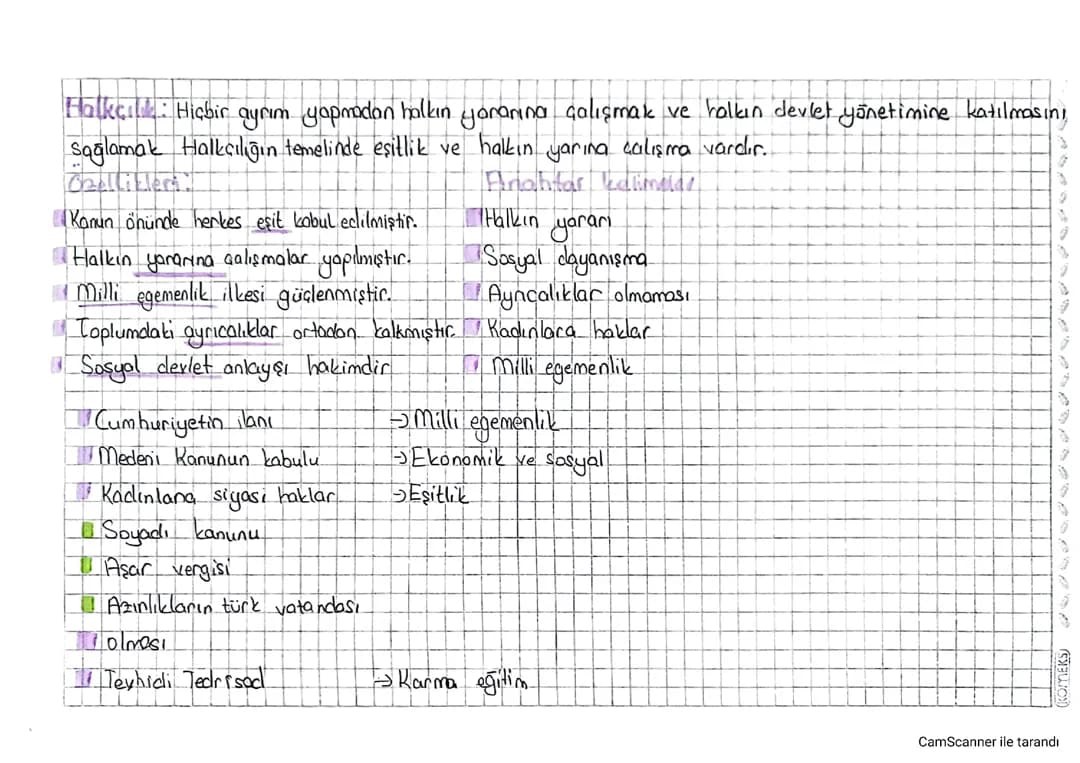 Halkçılık: Hiçbir ayrım yapmadan halkın yararına çalışmak ve halkın devlet yönetimine katılmasını
sağlamak Halkçılığın temelinde eşitlik ve halkın yarına çalışma vardır.
Özellikleri:
Kanun önünde herkes eşit kabul edilmiştir.
Halkın yararına çalışmalar yapılmıştır.
Milli egemenlik ilkesi güçlenmiştir.
Toplumdaki ayrıcalıklar ortadan kalkmıştır.
Sosyal devlet anlayışı hakimdir
Anahtar kelimeler
Halkın yararı
Sosyal dayanışma
Ayrıcalıklar olmaması
Kadınlara haklar
Milli egemenlik
Cumhuriyetin ilanı → Milli egemenlik
Medeni Kanunun kabulu → Ekonomik ve sosyal
Kadınlara siyasi haklar → Eşitlik
Soyadı kanunu
Aşar vergisi
Azınlıkların türk vatandaşı
olması
Tevhidi Tedrisad → Karma eğitim
KOMEKS
CamScanner ile tarandı